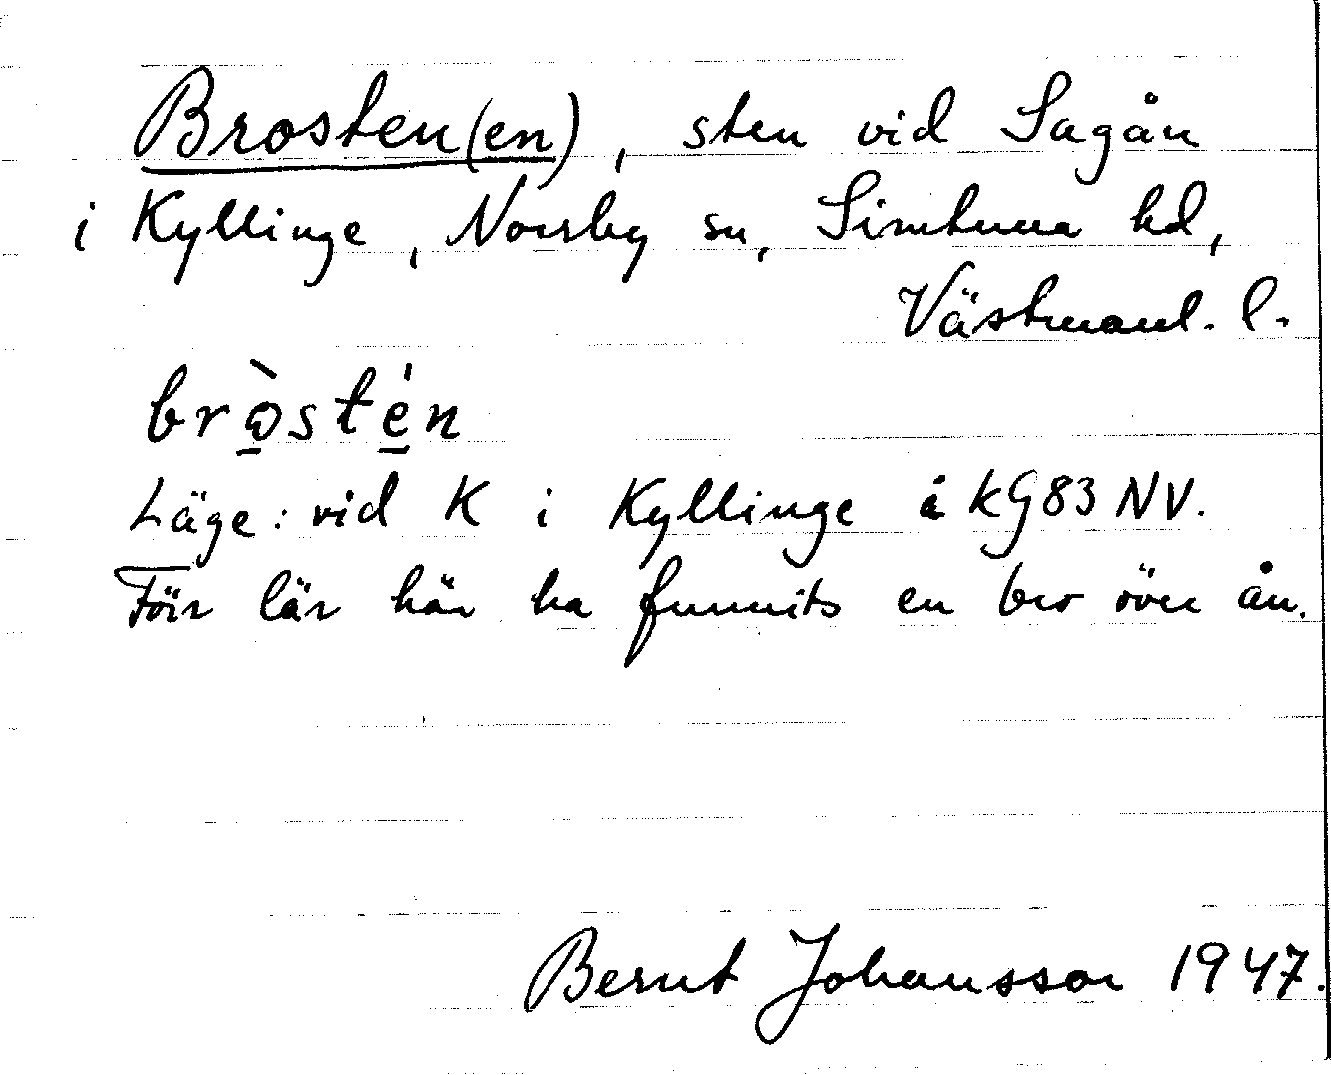 Brosten(en), sten vid Sagån
i Kyllinge, Norrby sn, Simtuna hd,
Västmanl. l.
brò̱sté̱n
Läge: vid K i Kyllinge å kG83 NV.
Förr lär här ha funnits en bro över ån.
Bernt Johansson 1947.